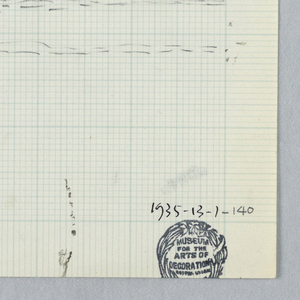 1935-13-1-140
MUSEUM
FOR THE
ARTS OF
DECORATION
COOPER UNION